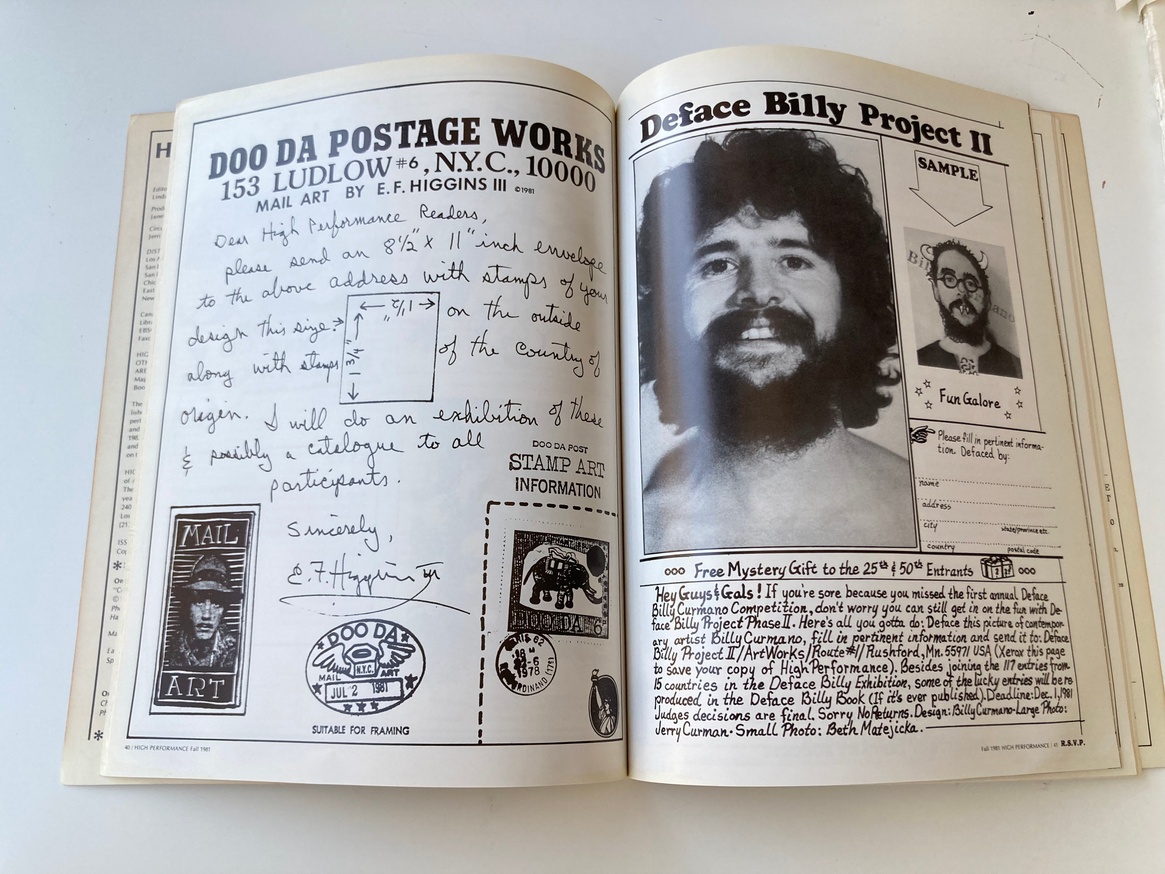 DOO DA POSTAGE WORKS
153 LUDLOW #6, N.Y.C., 10000
MAIL ART BY E.F. HIGGINS III ©1981
Dear High Performance Readers,
please send an 8½" x 11" inch envelope
to the above address with stamps of your
design this size → 1½" 1¾" on the outside
along with stamps of the country of
origin. I will do an exhibition of these
& possibly a catalogue to all
participants.
Sincerely,
E.F. Higgins III
DOO DA POST
STAMP ART
INFORMATION
MAIL
ART
DOO DA
N.Y.C.
MAIL ART
JUL 2 1981
SUITABLE FOR FRAMING
DOO DA 6
1978
40 / HIGH PERFORMANCE Fall 1981
Deface Billy Project II
SAMPLE
Fun Galore
Please fill in pertinent informa-
tion. Defaced by:
name
address
city state/province etc.
country postal code
ooo Free Mystery Gift to the 25th & 50th Entrants ooo
Hey Guys & Gals! If you're sore because you missed the first annual Deface
Billy Curmano Competition, don't worry you can still get in on the fun with De-
face Billy Project Phase II. Here's all you gotta do: Deface this picture of contempor-
ary artist Billy Curmano, fill in pertinent information and send it to: Deface
Billy Project II/ArtWorks/Route #1/Rushford, Mn. 55971 USA (Xerox this page
to save your copy of High Performance). Besides joining the 117 entries from
15 countries in the Deface Billy Exhibition, some of the lucky entries will be re
produced in the Deface Billy Book (If it's ever published). Deadline: Dec. 1, 1981
Judges decisions are final. Sorry No Returns. Design: Billy Curmano-Large Photo:
Jerry Curman · Small Photo: Beth Matejicka.
Fall 1981 HIGH PERFORMANCE / 41 R.S.V.P.